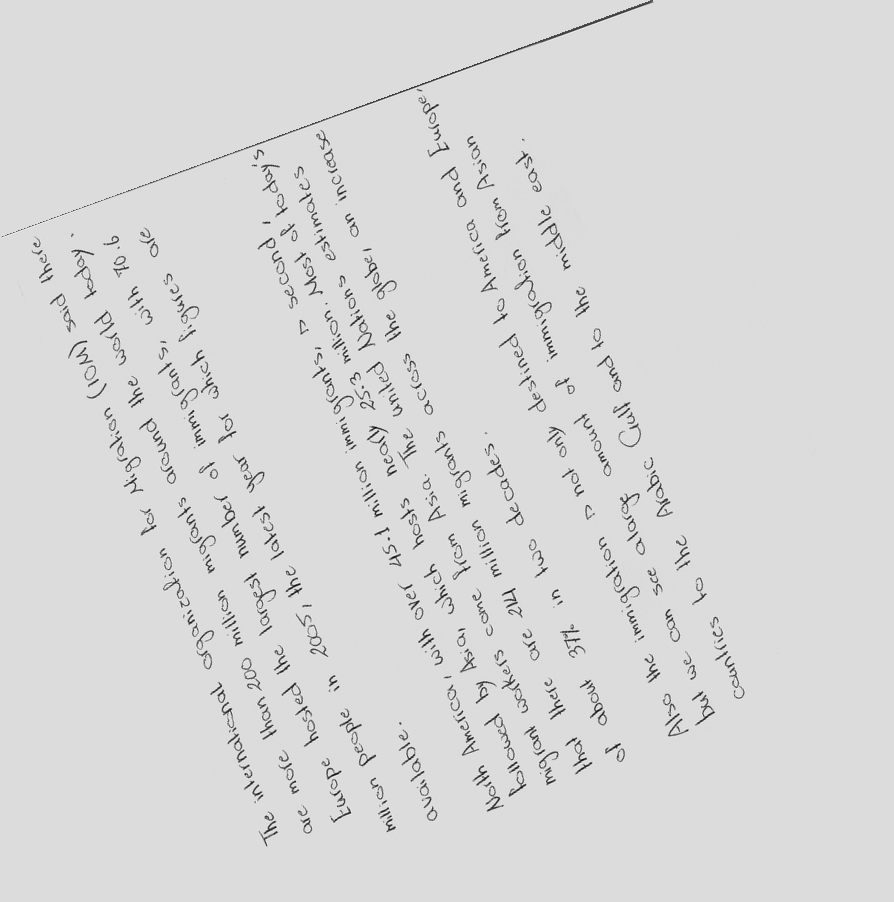 The international organization for Migration (IOM) said there
are more than 200 million migrants around the world today.
Europe hosted the largest number of immigrants, with 70.6
million people in 2005, the latest year for which figures are
available.
North America, with over 45.1 million immigrants, is second,
followed by Asia, which hosts nearly 25.3 million. Most of today's
migrant workers come from Asia. The united Nations estimates
that there are 214 million from migrants across the globe, an increase
of about 37% in two decades.
Also the immigration is not only destined to America and Europe,
but we can see alarge amount of immigration from Asian
countries to the Arabic Gulf and to the middle east.